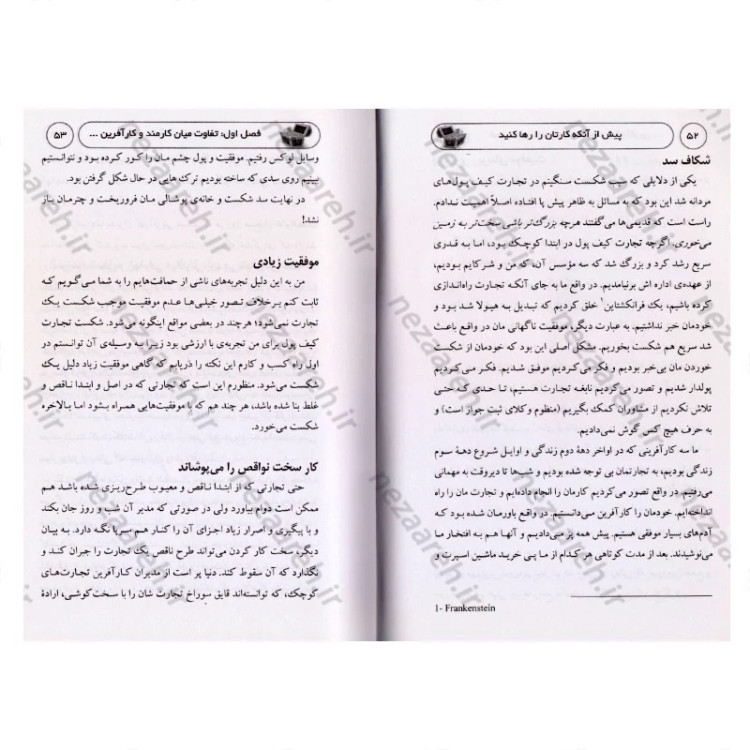 ۵۲
پیش از آنکه کارتان را رها کنید
شکاف سد
یکی از دلایلی که سبب شکست سنگینم در تجارت کیف پول‌های
مردانه شد این بود که به مسائل به ظاهر پیش پا افتاده اصلاً اهمیت ندادم.
راست است که قدیمی‌ها می‌گفتند هرچه بزرگ‌تر باشی سخت‌تر به زمین
می‌خوری. اگرچه تجارت کیف پول در ابتدا کوچک بود، اما به قدری
سریع رشد کرد و بزرگ شد که سه مؤسس آن، که من و شرکایم بودیم،
از عهده‌ی اداره اش برنیامدیم. در واقع ما به جای آنکه تجارت راه‌اندازی
کرده باشیم، یک فرانکشتاین۱ خلق کردیم که تبدیل به هیولا شد و از
خودمان خبر نداشتیم. به عبارت دیگر، موفقیت ناگهانی مان در واقع باعث
شد سریع هم شکست بخوریم. مشکل اصلی این بود که خودمان از شکست
خوردن مان بی‌خبر بودیم و فکر می‌کردیم موفق شدیم. فکر می‌کردیم
پولدار شدیم و تصور می‌کردیم نابغه تجارت هستیم، تا حدی که حتی
تلاش نکردیم از مشاوران کمک بگیریم (منظوم وکلای ثبت جواز است) و
به حرف هیچ کس گوش نمی‌دادیم.
ما سه کارآفرینی که در اواخر دهۀ دوم زندگی و اوایل شروع دهۀ سوم
زندگی بودیم، به تجارتمان بی توجه شده بودیم و شب‌ها تا دیروقت به مهمانی
می‌رفتیم. در واقع تصور می‌کردیم کارمان را انجام داده‌ایم و تجارت مان را راه
انداخته‌ایم. خودمان را کارآفرین می‌دانستیم. در واقع باورمان شده بود که
آدم‌های بسیار موفقی هستیم. پیش همه پز می‌دادیم و آنها هم به افتخار ما
می‌نوشیدند. بعد از مدت کوتاهی هر کدام از ما پی خرید ماشین اسپرت و
1- Frankenstein
فصل اول: تفاوت میان کارمند و کارآفرین ...
۵۳
وسایل لوکس رفتیم. موفقیت و پول چشم مان را کور کرده بود و نتوانستیم
ببینیم روی سدی که ساخته بودیم ترک هایی در حال شکل گرفتن بود.
در نهایت سد شکست و خانه‌ی پوشالی مان فروریخت و چترمان باز
نشد!
موفقیت زیادی
من به این دلیل تجربه‌های ناشی از حماقت‌هایم را به شما می‌گویم که
ثابت کنم برخلاف تصور خیلی‌ها عدم موفقیت موجب شکست یک
تجارت نمی‌شود؛ هرچند در بعضی مواقع اینگونه می‌شود. شکست تجارت
کیف پول برای من تجربه‌ی با ارزشی بود زیرا به وسیله‌ی آن توانستم در
اول راه کسب و کارم این نکته را دریابم که گاهی موفقیت زیاد دلیل یک
شکست می‌شود. منظورم این است که تجارتی که در اصل و ابتدا ناقص و
غلط بنا شده باشد، هر چند هم که با موفقیت‌هایی همراه بشود اما بالاخره
شکست می‌خورد.
کار سخت نواقص را می‌پوشاند
حتی تجارتی که از ابتدا ناقص و معیوب طرح‌ریزی شده باشد هم
ممکن است دوام بیاورد ولی در صورتی که مدیر آن شب و روز جان بکند
و با پیگیری و اصرار زیاد اجزای آن را کنار هم سرپا نگه دارد. به بیان
دیگر، سخت کار کردن می‌تواند طرح ناقص یک تجارت را جبران کند و
نگذارد که آن سقوط کند. دنیا پر است از مدیران کارآفرین تجارت‌های
کوچک، که توانسته‌اند قایق سوراخ تجارت شان را با سخت‌کوشی، ارادۀ
nezaareh.ir